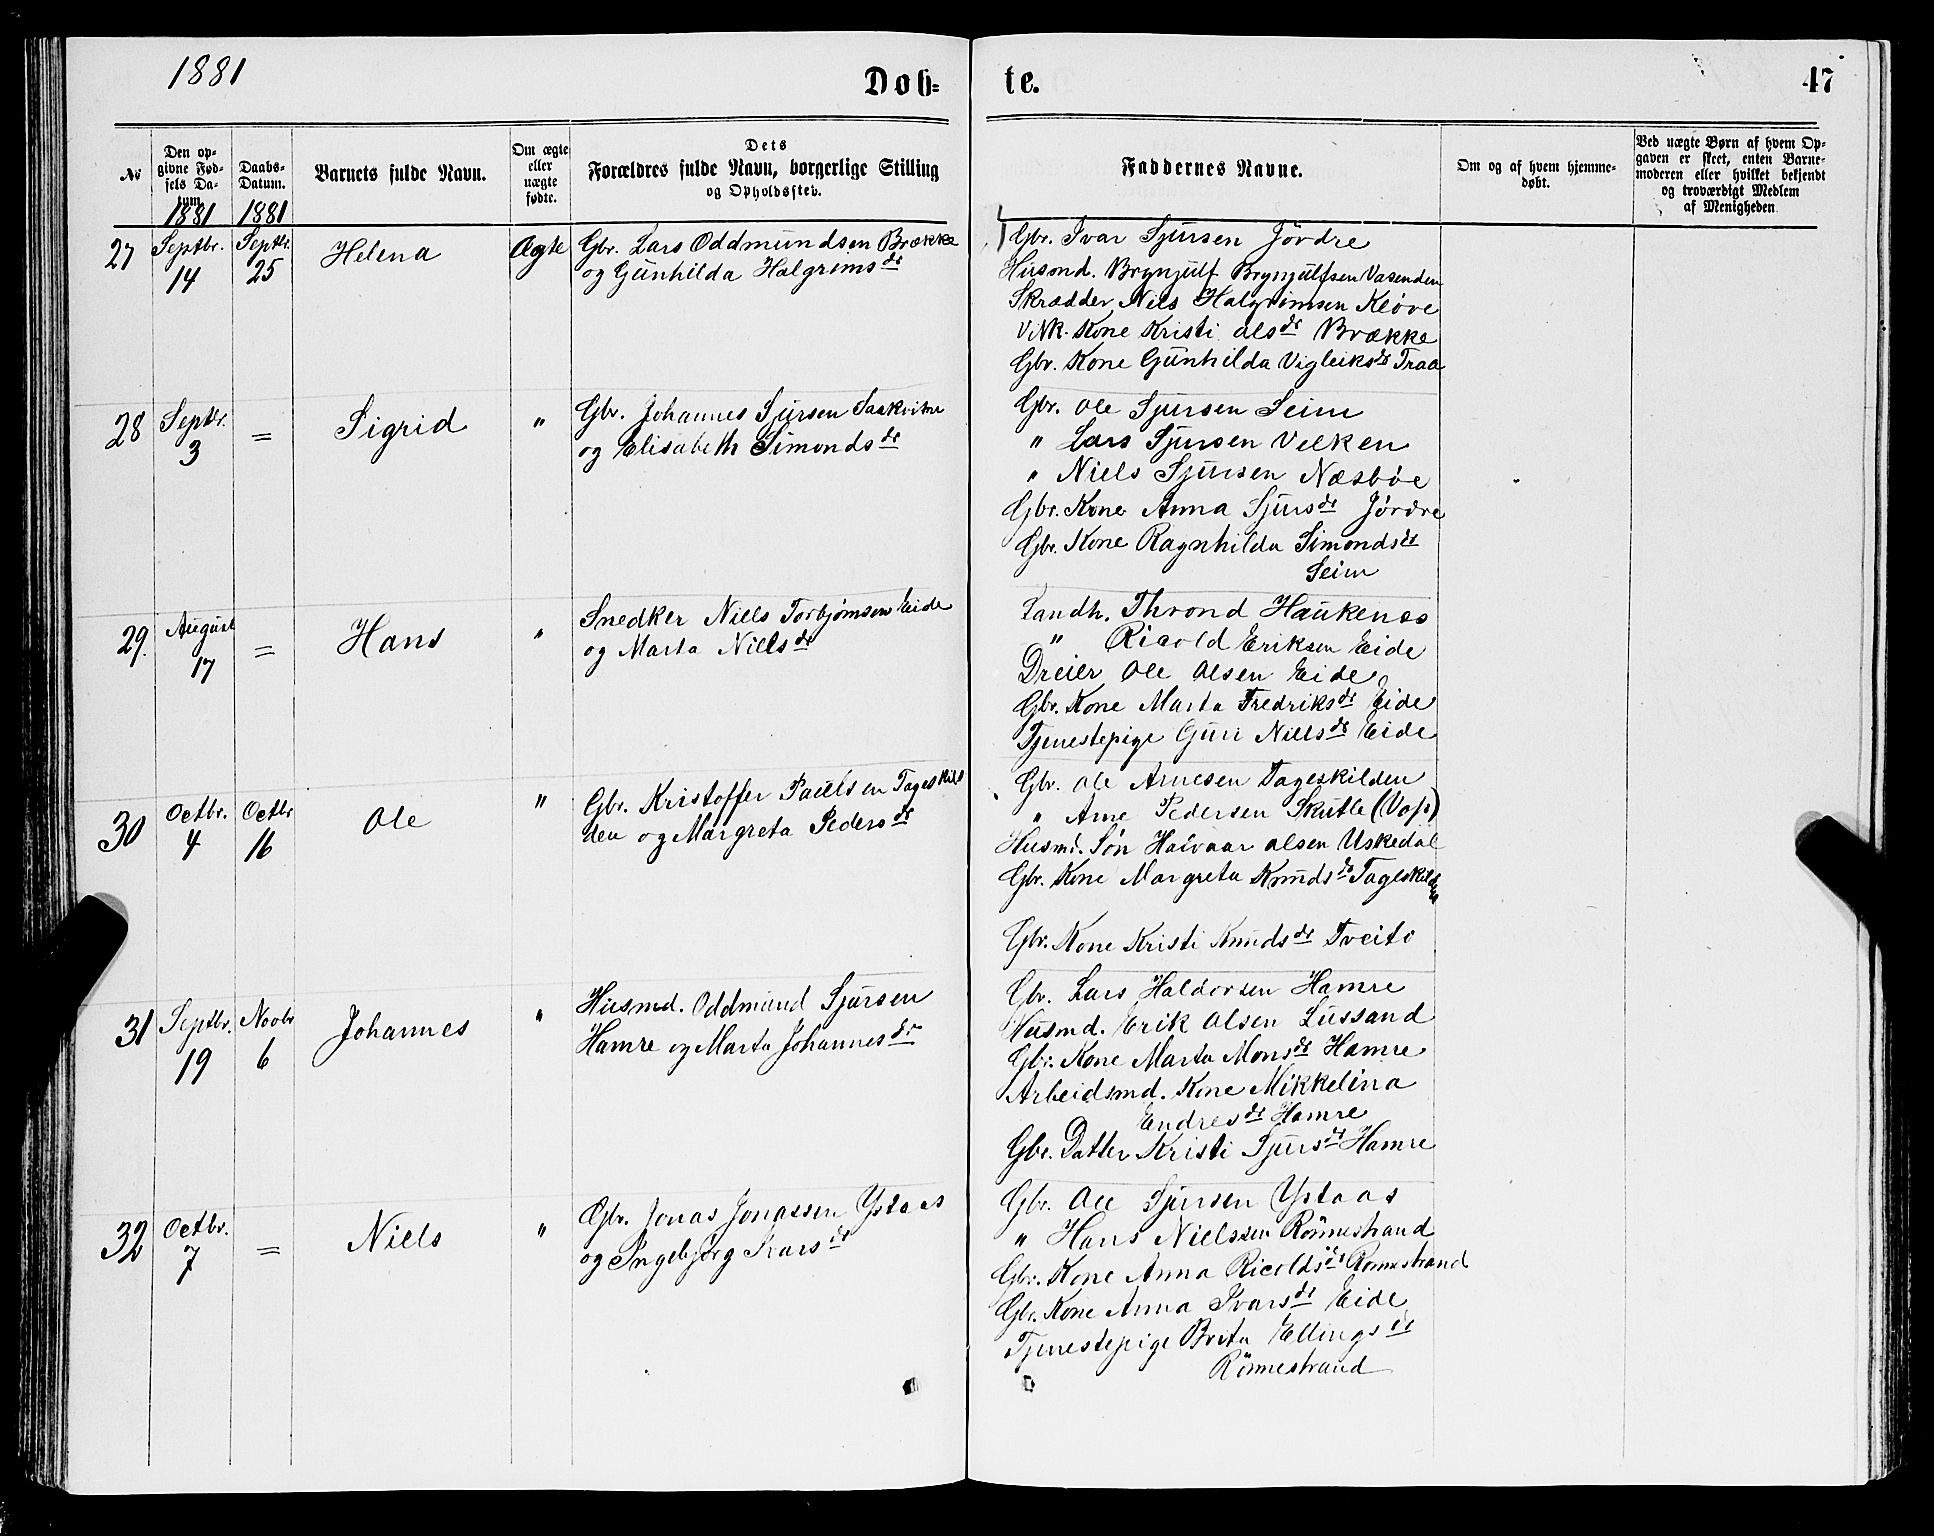 1881
Dob=
te.
47
No
Den op-
givne Fød-
sels Da-
tum.
1881
Daabs-
Datum.
1881
Barnets fulde Navn.
Om ægte
eller
uægte
fødte.
Dets
Forældres fulde Navn, borgerlige Stilling
og Opholdssted.
Faddernes Navne.
Om og af hvem hjemme-
døbt.
Ved uægte Børn af hvem Op-
gaven er skeet, enten Barne-
moderen eller hvilket bekjendt
og troværdigt Medlem
af Menigheden
27
Septbr.
14
Septbr.
25
Helena
Ægte
Gbr. Lars Oddmundsen Brække
og Gunhilda Halgrims dr
Gbr. Ivar Sjursen Jövdre
Husmd. Brynjulf Brynjulfsen Vasenden
Skrædder Nils Halgrimsen Klöve
Kone Kristi Ols dr Brække
Gbr. Kone Gunhilda Vigleiks dr Traa
28
Septbr.
3
=
Sigrid
"
Gbr. Johannes Sjursen Saakvitne
og Elisabeth Simonds dr
Gbr. Ole Sjursen Seim
" Lars Sjursen Velken
" Niels Sjursen Næsböe
Gbr. Kone Anna Sjurs dr Jördre
Gbr. Kone Ragnhilda Simonds dr
Seim
29.
August
17
=
Hans
"
Snedker Niels Torbjörnsen Eide
og Marta Niels dr
Landh. Thrond Haukenes
" Ricold Eriksen Eide
Dreier Ole Olsen Eide
Gbr. Kone Marta Fredriks dr Eide
Tjenestepige Guri Niels dr Eide
30
Octbr.
4
Octbr
16
Ole
"
Gbr. Kristoffer Paulsen Tageskil
den og Margreta Peders dr
Gbr. Ole Arnesen Tageskilden
" Arne Pedersen Skutle (Vofs)
Husmd. Søn Haivaar Olsen Uskedal
Gbr. Kone Margreta Knuds dr Tageskilden
Gbr. Kone Kristi Knuds dr Tveito
31
Septbr.
19
Novbr
6
Johannes
"
Husmd. Oddmund Sjursen
Hamre og Marta Johannes dr
Gbr. Lars Haldorsen Hamre
Husmd. Erik Olsen Lussand
Gbr. Kone Marta Mons dr Hamre
Arbeidsmd. Kone Mikkelina
Endres dr Hamre
Gbr. Datter Kristi Sjurs dr Hamre
32
Octbr.
7
=
Niels
"
Gbr. Jonas Jonassen Ystaas
og Ingebjörg Ivars dr
Gbr. Ole Sjursen Ystaas
" Hans Nielssen Rönnestrand
Gbr. Kone Anna Ricolds dr Rönnestrand
Gbr. Kone Anna Ivars dr Eide
Tjenestepige Brita Ellings dr
Rönnestrand